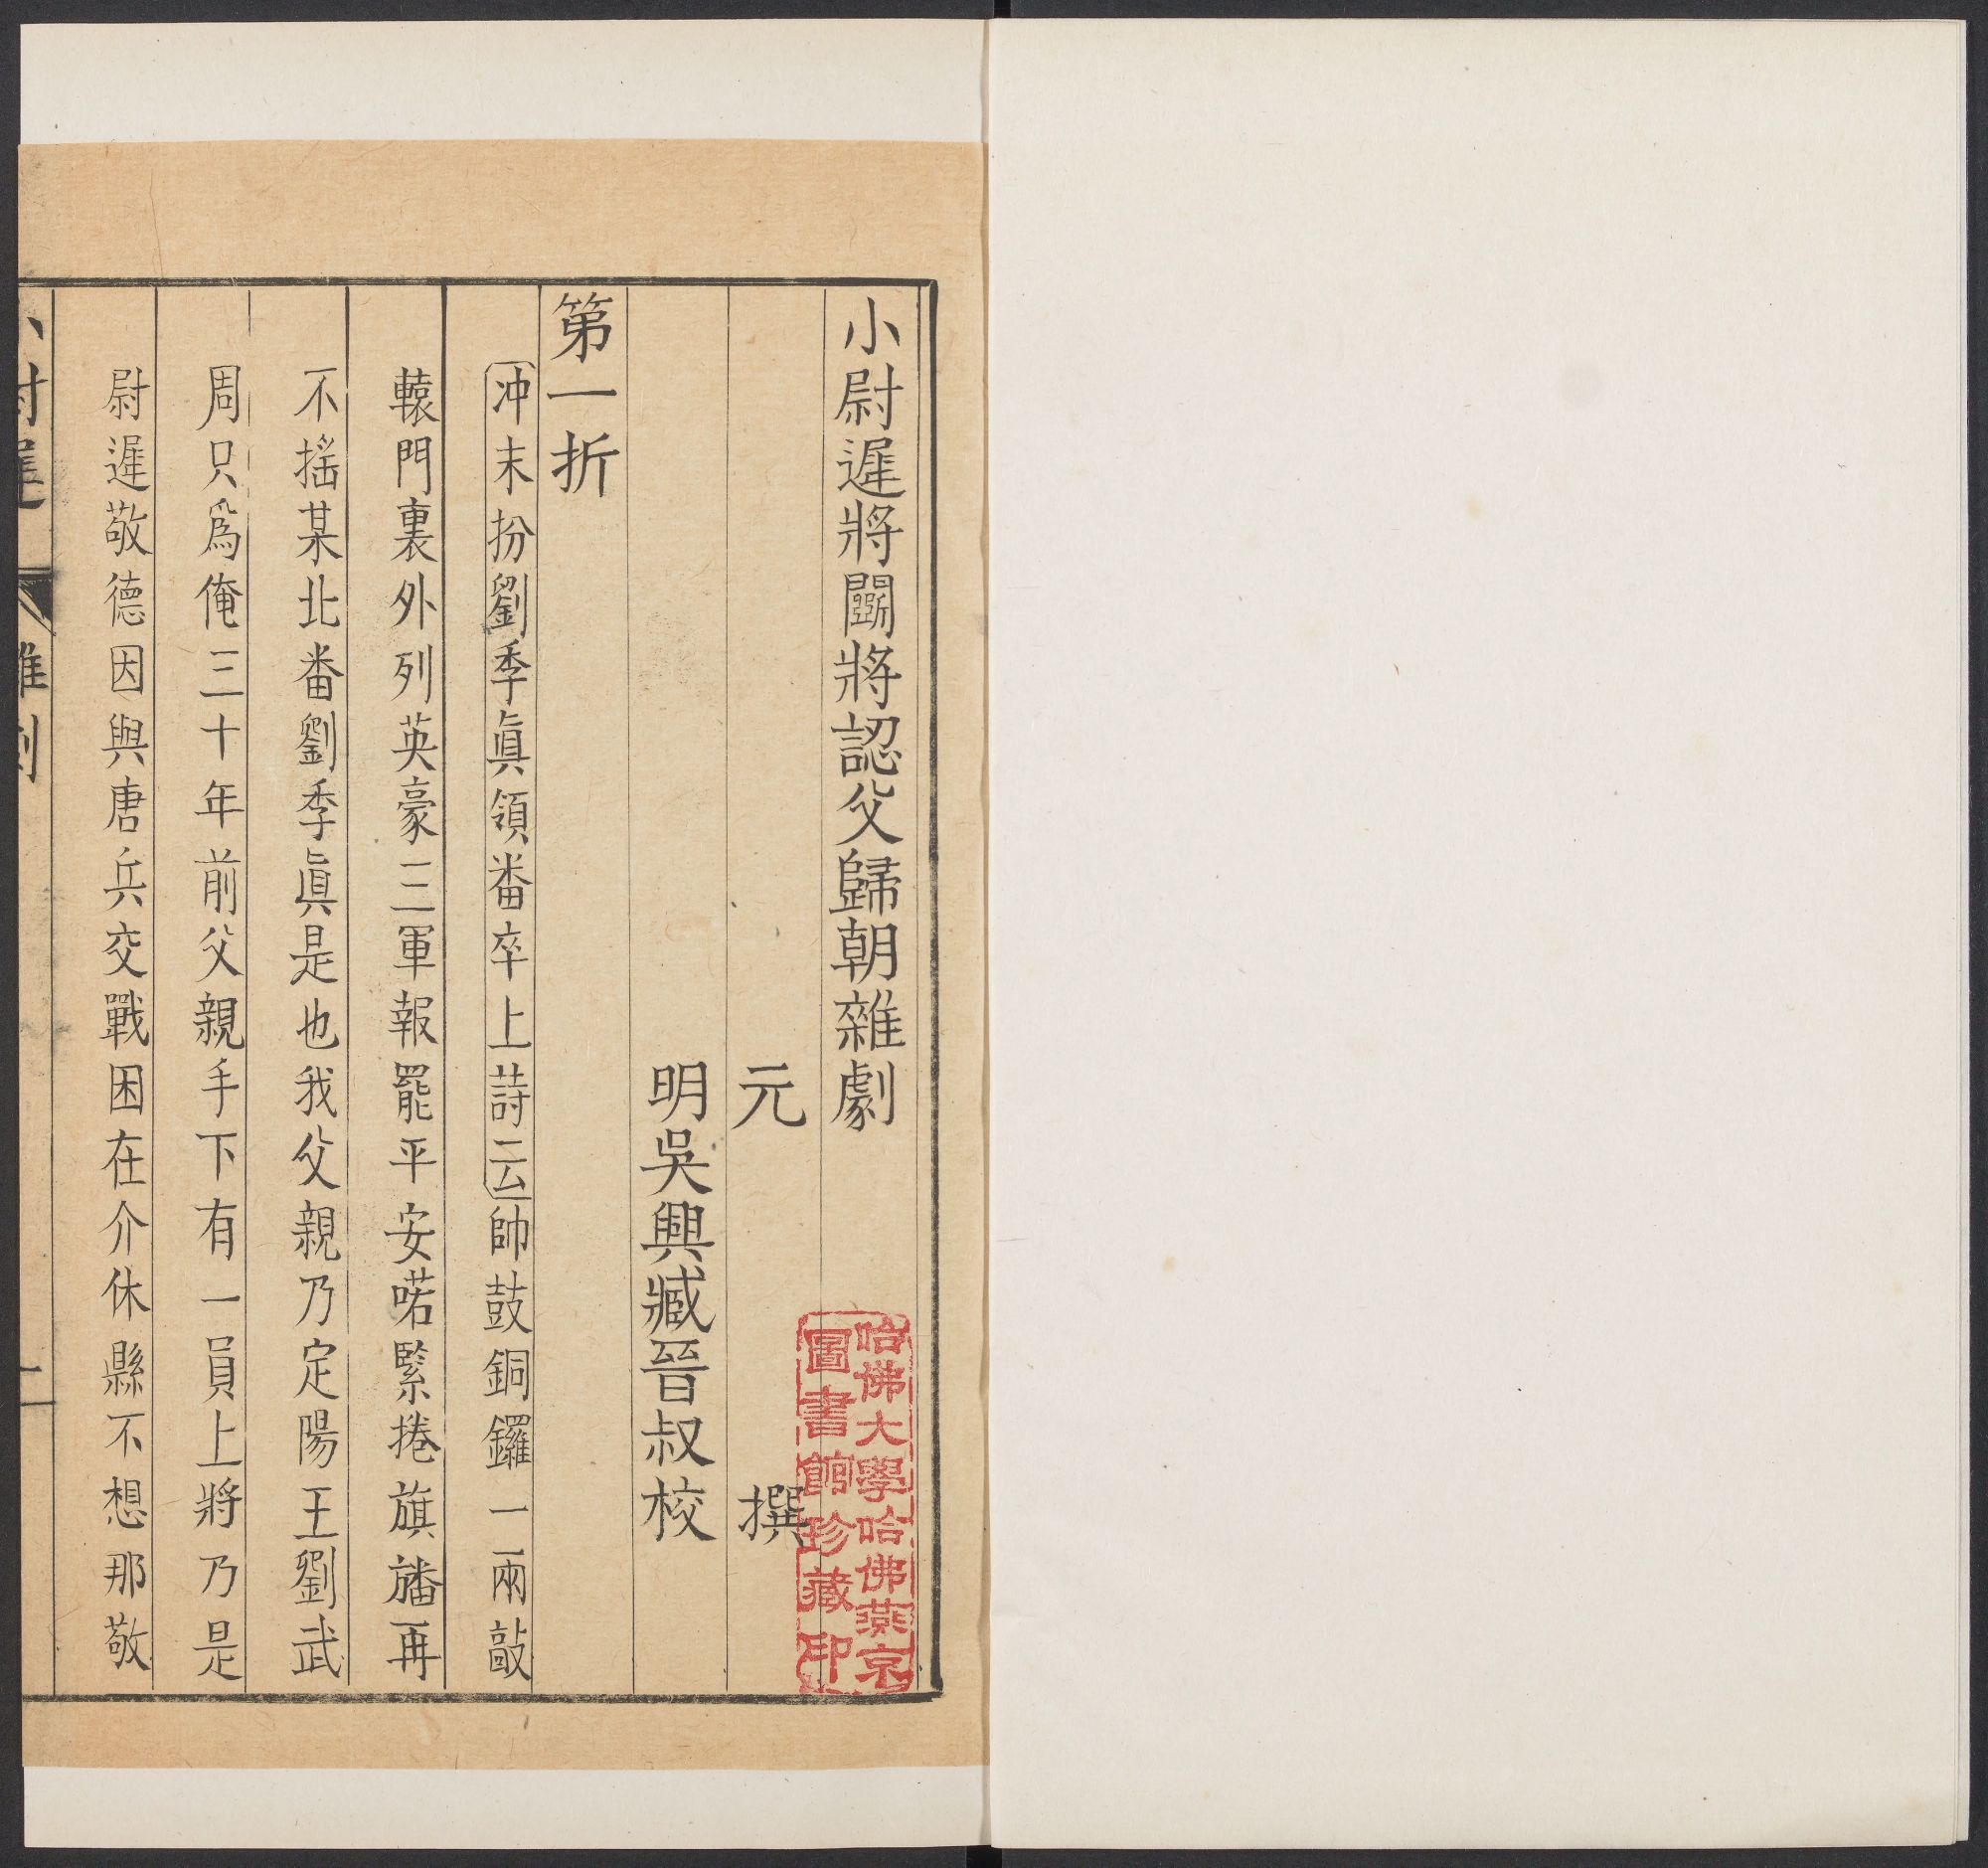 小尉遲將鬭將認父歸朝雜劇
元　撰
明吳興臧晉叔校
第一折
冲末扮劉季眞領番卒上詩云帥鼓銅鑼一兩敲
轅門裏外列英豪三軍報罷平安喏緊捲旗旛再
不搖某北番劉季眞是也我父親乃定陽王劉武
周只爲俺三十年前父親手下有一員上將乃是
尉遲敬德因與唐兵交戰困在介休縣不想那敬
小尉遲　雜劇　一
哈佛大學哈佛燕京
圖書館珍藏印